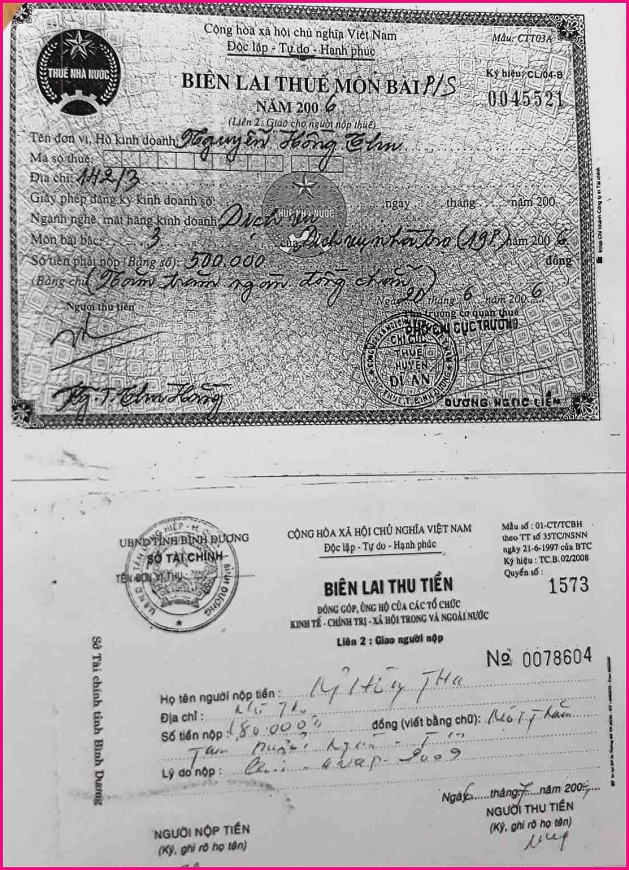 Cộng hòa xã hội chủ nghĩa Việt Nam
Độc lập - Tự do - Hạnh phúc
Mẫu: CTT03A
THUẾ NHÀ NƯỚC
BIÊN LAI THUẾ MÔN BÀI P/S
Ký hiệu: CL/04-B
NĂM 2006
0045521
(Liên 2: Giao cho người nộp thuế)
Tên đơn vị, Hộ kinh doanh: Nguyễn Hồng
Mã số thuế:
Địa chỉ: 142/3
Giấy phép đăng ký kinh doanh số: ngày tháng năm 200
THUẾ NHÀ NƯỚC
Ngành nghề, mặt hàng kinh doanh: Dịch vụ
Môn bài bậc: 3 của Dịch vụ nhà trọ (19P) năm 2006
Số tiền phải nộp (Bằng số): 500.000 đồng
(Bằng chữ) (Năm trăm ngàn đồng chẵn)
Ngày 20 tháng 6 năm 2006
Người thu tiền
Thủ trưởng cơ quan thuế
PHÓ CHI CỤC TRƯỞNG
CHI CỤC
THUẾ
HUYỆN
DĨ AN
Ng. T. Thu Hồng
DƯƠNG NGỌC LIÊM
UBND TỈNH BÌNH DƯƠNG
SỞ TÀI CHÍNH
TÊN ĐƠN VỊ THU
CỘNG HÒA XÃ HỘI CHỦ NGHĨA VIỆT NAM
Độc lập - Tự do - Hạnh phúc
Mẫu số : 01-CT/TCBH
theo TT số 35TC/NSNN
ngày 21-6-1997 của BTC
Ký hiệu : TC.B.02/2008
Quyển số :
1573
BIÊN LAI THU TIỀN
ĐÓNG GÓP, ỦNG HỘ CỦA CÁC TỔ CHỨC
KINH TẾ - CHÍNH TRỊ - XÃ HỘI TRONG VÀ NGOÀI NƯỚC
Liên 2 : Giao người nộp
Nº 0078604
Sở Tài chính tỉnh Bình Dương
Họ tên người nộp tiền :
Địa chỉ :
Số tiền nộp : 180.000đ đồng (viết bằng chữ): Một Trăm
Tám mươi ngàn
Lý do nộp : 2009
Ngày tháng 7 năm 200
NGƯỜI NỘP TIỀN
(Ký, ghi rõ họ tên)
NGƯỜI THU TIỀN
(Ký, ghi rõ họ tên)